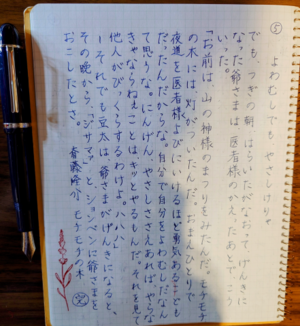 ⑤
よわむしでも やさしけりゃ
でも、つぎの朝はらいたがなおって、げんきに
なった爺さまは、医者様のかえったあとで、こう
いった。
「お前は、山の神様のまつりをみたんだ。モチモチ
の木には、灯がついたんだ。おまえひとりで
夜道を医者様よびにいけるほど勇気ある子ども
だったんだからな。自分で自分をよわむしだなん
て思うな。にんげん、やさしささえあれば、やらな
きゃならねえことはキッとやるもんだ。それを見て
他人がびっくらするわけよ。ハハハ」
―それでも豆太は、爺さまがげんきになると、
その晩から、「ジサマァ」と、ションベンに爺さまを
おこしたとさ。
斎藤隆介 モチモチの木